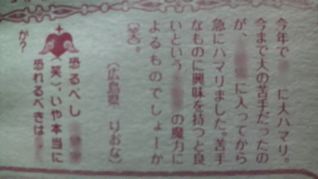 今年で に大ハマリ。
今まで大の苦手だったの
が、 に入ってから
急にハマりました。苦手
なものに興味を持つと良
いという の魔力に
よるものでしょーか
(笑)。
(広島県 りおな)
恐るべし
(笑)。いや本当に
恐れるべきは
が?